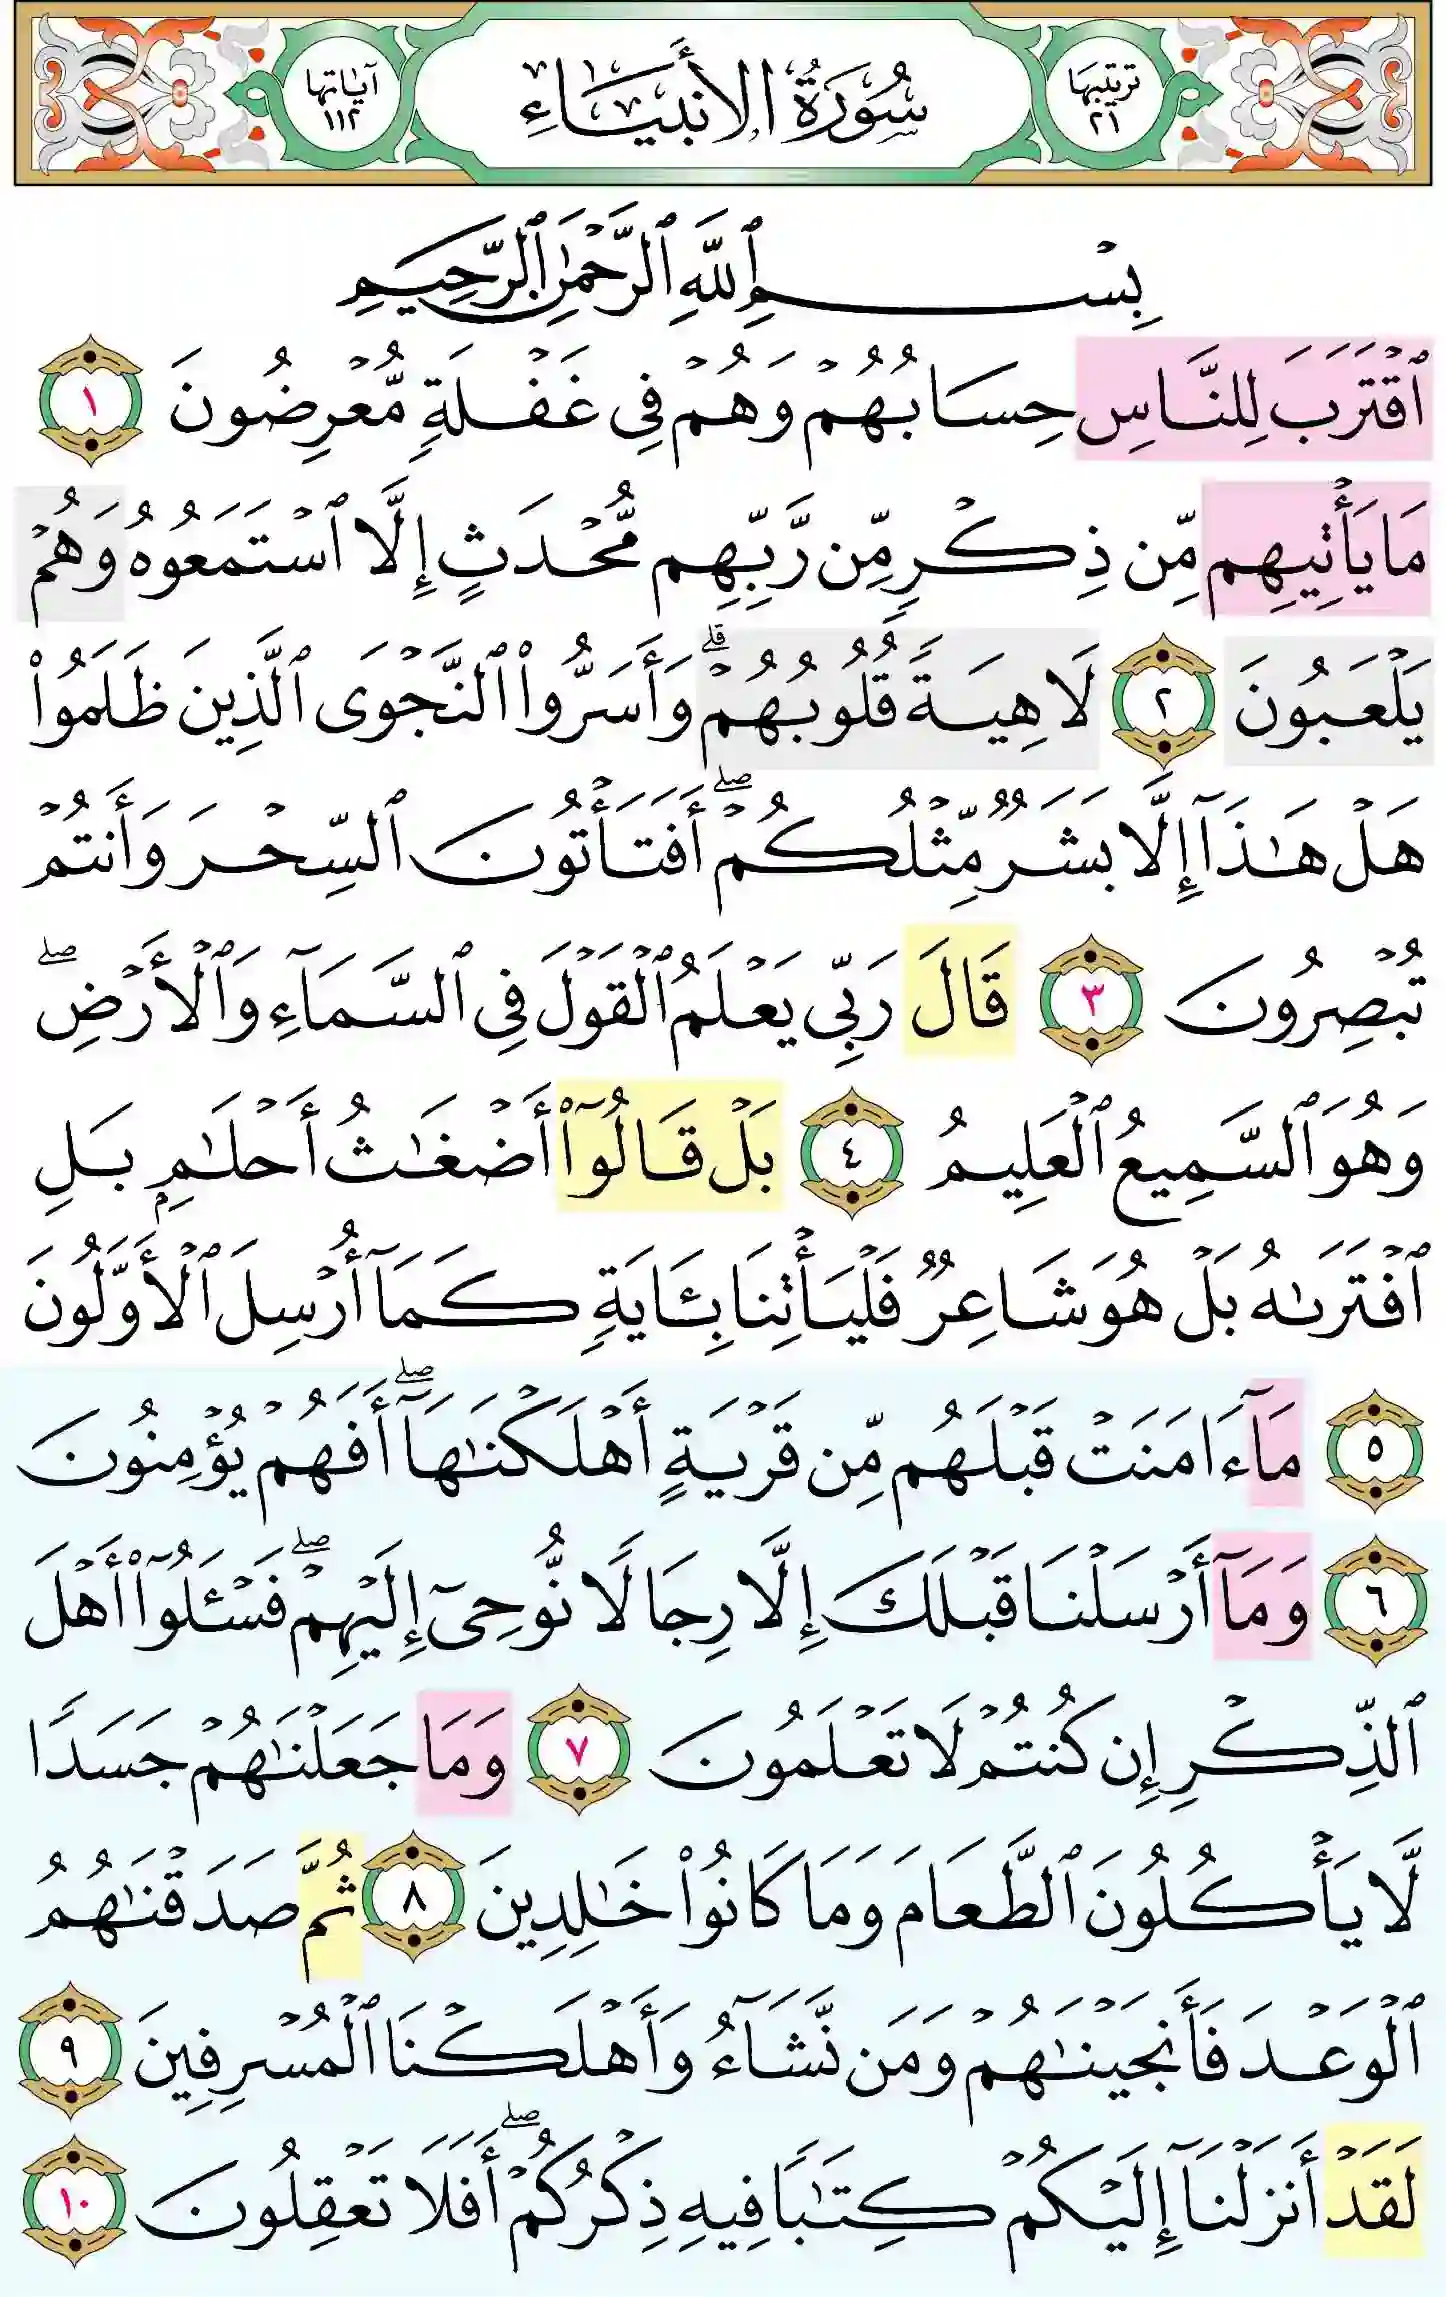 ترتيبها ٢١
سُورَةُ الأَنبِيَاءِ
آياتها ١١٢
بِسْمِ ٱللَّهِ ٱلرَّحْمَٰنِ ٱلرَّحِيمِ
ٱقْتَرَبَ لِلنَّاسِ حِسَابُهُمْ وَهُمْ فِى غَفْلَةٍ مُّعْرِضُونَ ١
مَا يَأْتِيهِم مِّن ذِكْرٍ مِّن رَّبِّهِم مُّحْدَثٍ إِلَّا ٱسْتَمَعُوهُ وَهُمْ
يَلْعَبُونَ ٢ لَاهِيَةً قُلُوبُهُمْ ۗ وَأَسَرُّوا۟ ٱلنَّجْوَى ٱلَّذِينَ ظَلَمُوا۟
هَلْ هَٰذَآ إِلَّا بَشَرٌ مِّثْلُكُمْ ۖ أَفَتَأْتُونَ ٱلسِّحْرَ وَأَنتُمْ
تُبْصِرُونَ ٣ قَالَ رَبِّى يَعْلَمُ ٱلْقَوْلَ فِى ٱلسَّمَآءِ وَٱلْأَرْضِ ۖ
وَهُوَ ٱلسَّمِيعُ ٱلْعَلِيمُ ٤ بَلْ قَالُوٓا۟ أَضْغَٰثُ أَحْلَٰمٍۭ بَلِ
ٱفْتَرَىٰهُ بَلْ هُوَ شَاعِرٌ فَلْيَأْتِنَا بِـَٔايَةٍ كَمَآ أُرْسِلَ ٱلْأَوَّلُونَ
٥ مَآ ءَامَنَتْ قَبْلَهُم مِّن قَرْيَةٍ أَهْلَكْنَٰهَآ ۖ أَفَهُمْ يُؤْمِنُونَ
٦ وَمَآ أَرْسَلْنَا قَبْلَكَ إِلَّا رِجَالًا نُّوحِىٓ إِلَيْهِمْ ۖ فَسْـَٔلُوٓا۟ أَهْلَ
ٱلذِّكْرِ إِن كُنتُمْ لَا تَعْلَمُونَ ٧ وَمَا جَعَلْنَٰهُمْ جَسَدًا
لَّا يَأْكُلُونَ ٱلطَّعَامَ وَمَا كَانُوا۟ خَٰلِدِينَ ٨ ثُمَّ صَدَقْنَٰهُمُ
ٱلْوَعْدَ فَأَنجَيْنَٰهُمْ وَمَن نَّشَآءُ وَأَهْلَكْنَا ٱلْمُسْرِفِينَ ٩
لَقَدْ أَنزَلْنَآ إِلَيْكُمْ كِتَٰبًا فِيهِ ذِكْرُكُمْ ۖ أَفَلَا تَعْقِلُونَ ١٠